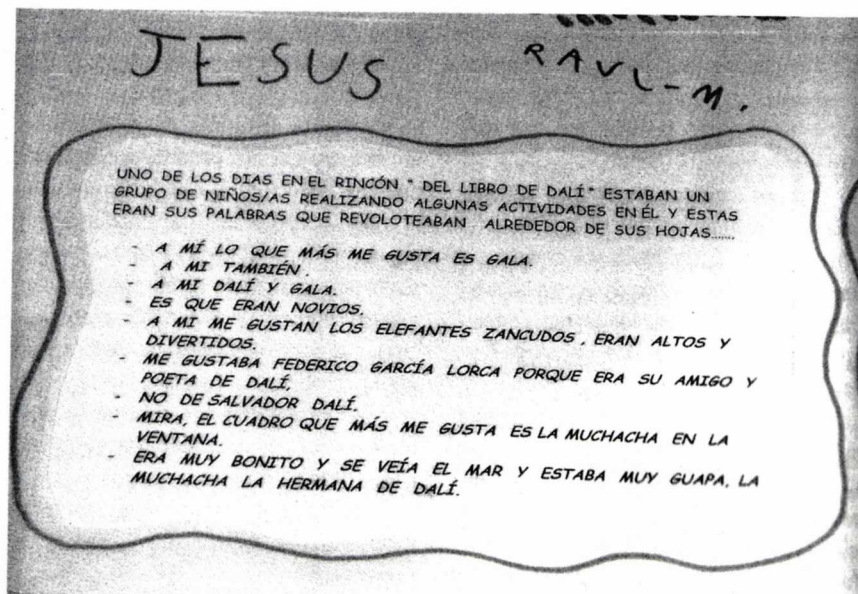 JESUS
RAUL-M.
UNO DE LOS DIAS EN EL RINCÓN " DEL LIBRO DE DALÍ" ESTABAN UN
GRUPO DE NIÑOS/AS REALIZANDO ALGUNAS ACTIVIDADES EN ÉL Y ESTAS
ERAN SUS PALABRAS QUE REVOLOTEABAN ALREDEDOR DE SUS HOJAS.......
- A MÍ LO QUE MÁS ME GUSTA ES GALA.
- A MI TAMBIÉN .
- A MI DALÍ Y GALA.
- ES QUE ERAN NOVIOS.
- A MI ME GUSTAN LOS ELEFANTES ZANCUDOS , ERAN ALTOS Y
DIVERTIDOS.
- ME GUSTABA FEDERICO GARCÍA LORCA PORQUE ERA SU AMIGO Y
POETA DE DALÍ,
- NO DE SALVADOR DALÍ.
- MIRA, EL CUADRO QUE MÁS ME GUSTA ES LA MUCHACHA EN LA
VENTANA.
- ERA MUY BONITO Y SE VEÍA EL MAR Y ESTABA MUY GUAPA, LA
MUCHACHA LA HERMANA DE DALÍ.